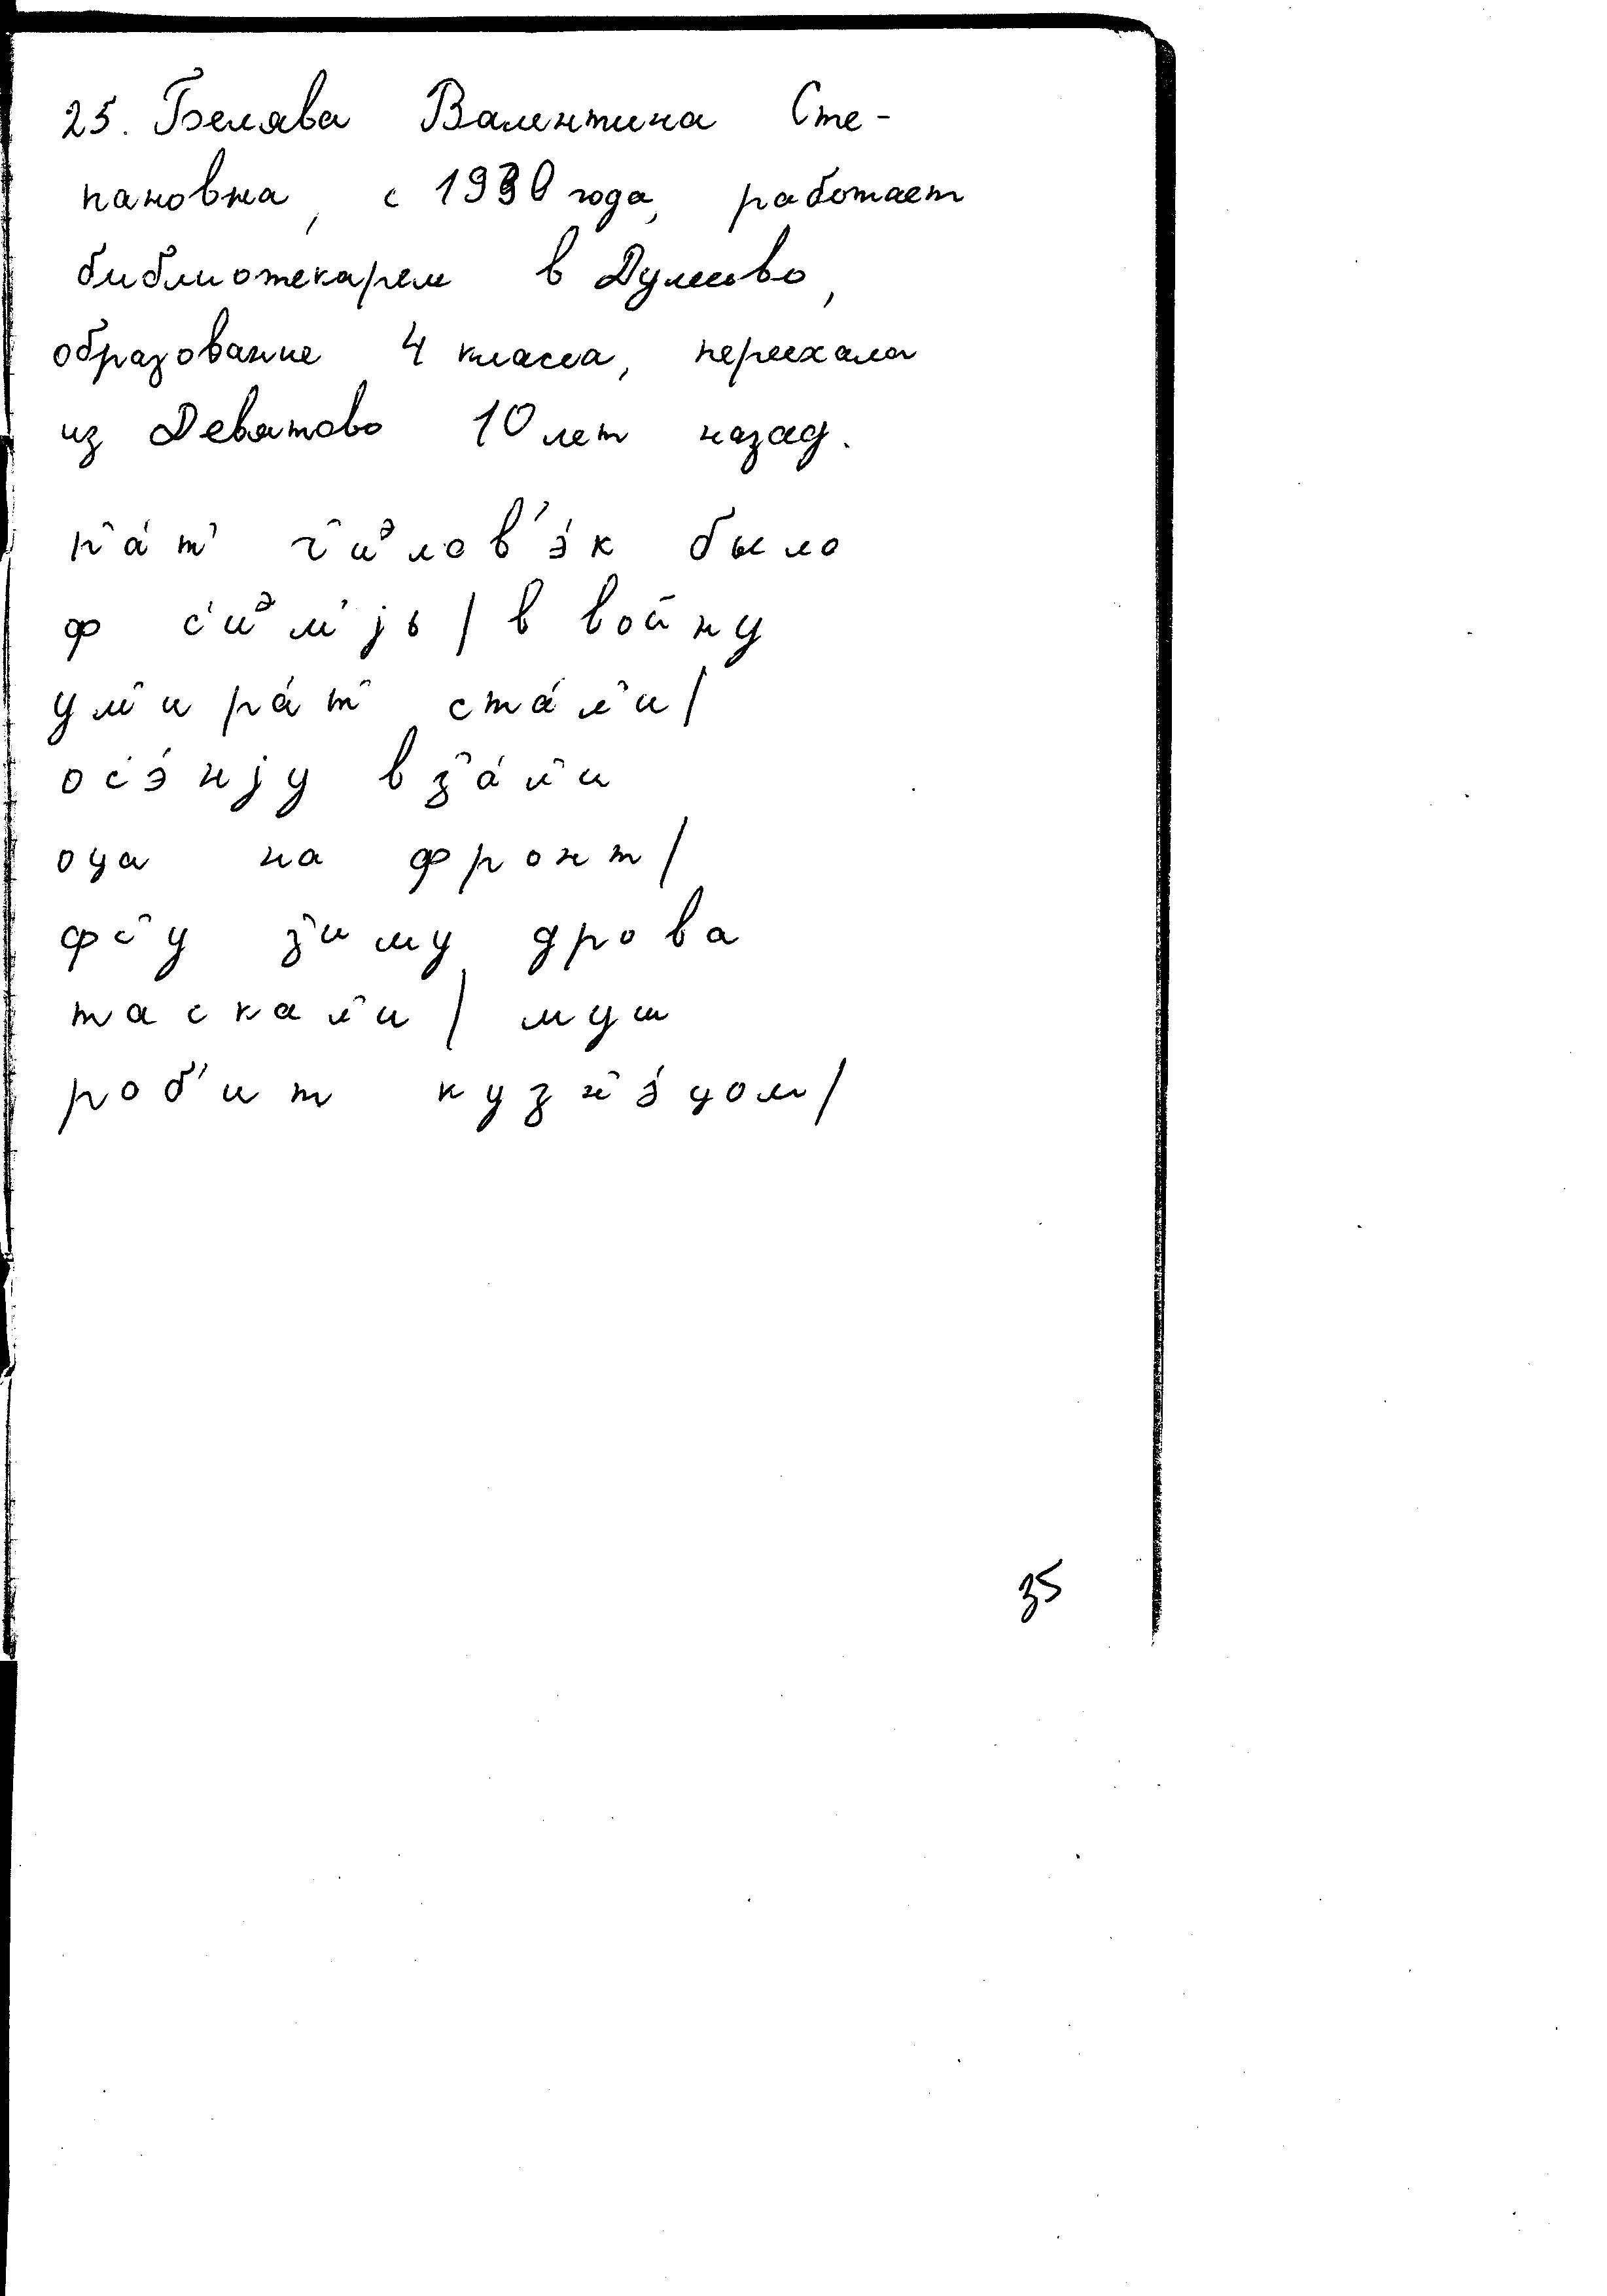 25. Белява Валентина Сте-
пановна, с 1930 года, работает
библиотекарем в Дулево,
образование 4 класса, переехала
из Девятово 10 лет назад.
п'а́т' ч'иэлов'э́к было
ф с'иэм'jь / в войну
ум'ира́т' ста́л'и /
ос'э́нjу вз'а́л'и
оца на фронт /
фс'у з'иму дрова
таскал'и / муш
роб'ит кузн'э́цом /
35